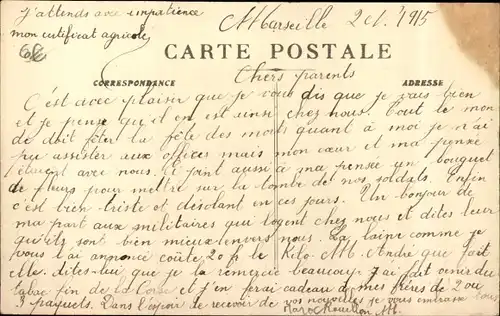 J'attends avec impatience
mon certificat agricole
Marseille 2 1915
CARTE POSTALE
CORRESPONDANCE
ADRESSE
Chers parents
C'est avec plaisir que je vous dis que je vais bien
et je pense qu'il en est ainsi chez nous. Tout le mon
de doit fêter la fête des morts quant à moi je n'ai
pu assister aux offices mais mon cœur et ma pensé
étaient avec nous. Je joint aussi à ma pensée un bouquet
de fleurs pour mettre sur la tombe de nos soldats. Enfin
c'est bien triste et désolant en ces jours. Un bonjour de
ma part aux militaires qui logent chez nous et dites leur
qu'ils sont bien mieux chez nous. La laine comme je
vous l'ai annoncé coûte 20 f le Kilo. M. André que fait
elle. dites-lui que je la remercie beaucoup. J'ai fait venir du
tabac fin de la Corse et j'en ferai cadeau à mes frères de 2 ou
3 paquets. Dans l'espoir de recevoir de vos nouvelles je vous embrasse tous